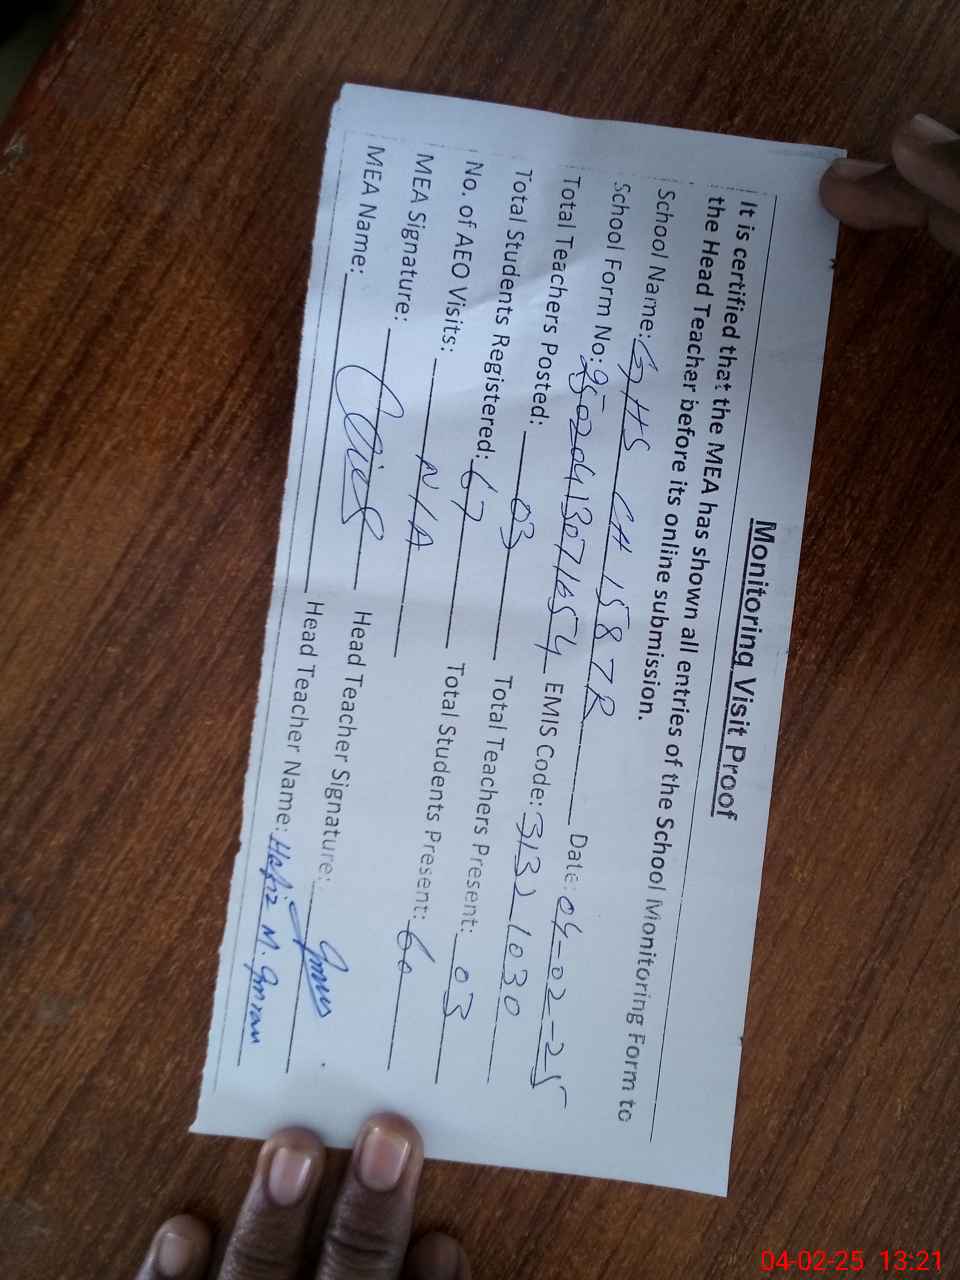 Monitoring Visit Proof
It is certified that the MEA has shown all entries of the School Monitoring Form to
the Head Teacher before its online submission.
School Name: GHS CH 158 7R Date: 04-02-25
School Form No: 25020413071654 EMIS Code: 31321030
Total Teachers Posted: 03 Total Teachers Present: 03
Total Students Registered: 67 Total Students Present: 60
No. of AEO Visits: N/A
MEA Signature: Head Teacher Signature:
MEA Name: Head Teacher Name: Hafiz M. Imran
04-02-25 13:21